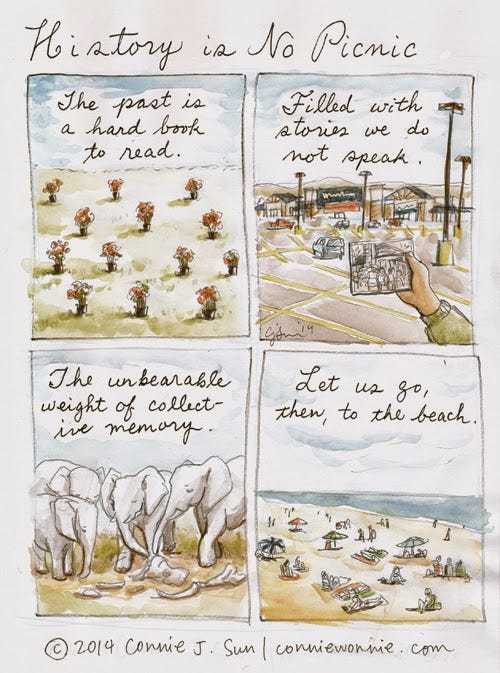 History is No Picnic
The past is
a hard book
to read.
Filled with
stories we do
not speak.
CJSun '14
The unbearable
weight of collect-
ive memory.
Let us go,
then, to the beach.
© 2014 Connie J. Sun | conniewonnie.com